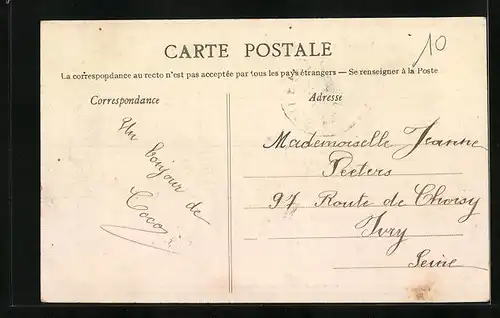 CARTE POSTALE
10
La correspondance au recto n'est pas acceptée par tous les pays étrangers — Se renseigner à la Poste
Correspondance
Adresse
Un
bonjour de
Coco
Mademoiselle Jeanne
Peeters
97 Route de Choisy
Ivry
Seine